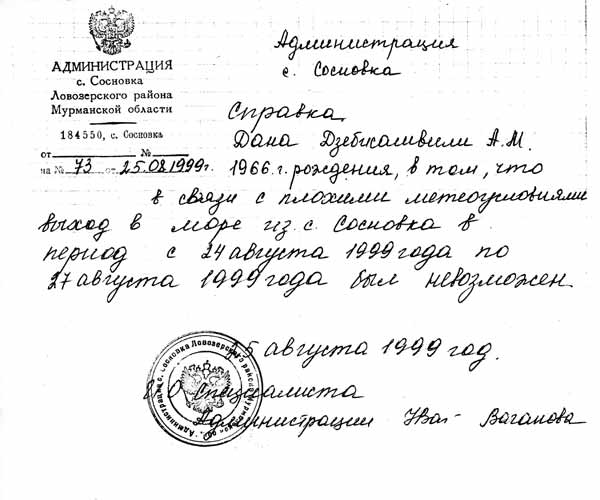 АДМИНИСТРАЦИЯ
с. Сосновка
Ловозерского района
Мурманской области
184550, с. Сосновка
от № 
на № 73 от 25.08.1999г.
Администрация
с. Сосновка
Справка
Дана Дзебисашвили А.М.
1966 г. рождения, в том, что
в связи с плохими метеоусловиями
выход в море из с. Сосновка в
период с 24 августа 1999 года по
27 августа 1999 года был невозможен.
25 августа 1999 год.
И О Специалиста
Администрации Ваганова
Администрация с. Сосновка Ловозерского района